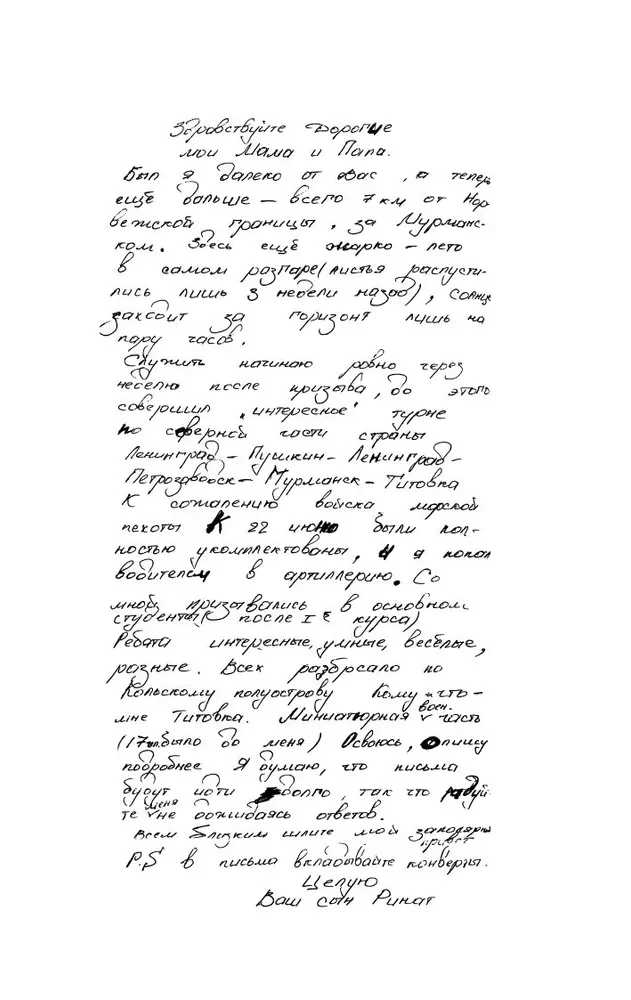 Здравствуйте Дорогие
мои Мама и Папа.
Был я далеко от Вас, а тепер
ещё дальше – всего 7 км от Нор
вежской границы, за Мурманс-
ком. Здесь ещё жарко – лето
в самом разгаре (листья распусти-
лись лишь 3 недели назад), солнце
заходит за горизонт лишь на
пару часов.
Служить начинаю ровно через
неделю после призыва, до этого
совершил „интересное" турне
по северной части страны
Ленинград – Пушкин – Ленинград –
Петрозаводск – Мурманск – Титовка
К сожалению войска морской
пехоты К 22 июню были пол-
ностью укомплектованы, и я попал
водителем в артиллерию. Со
мной призывались в основном
студенты (после I курса)
Ребята интересные, умные, весёлые,
разные. Всех разбросало по
Кольскому полуострову Кому что –
мне Титовка. Миниатюрная воен. часть
(17 было до меня) Освоюсь, опишу
подробнее Я думаю, что письма
будут идти долго, так что радуй
те меня не дожидаясь ответов.
Всем близким шлите мой заполярный
привет
P.S в письма вкладывайте конверты.
Целую
Ваш сын Ринат